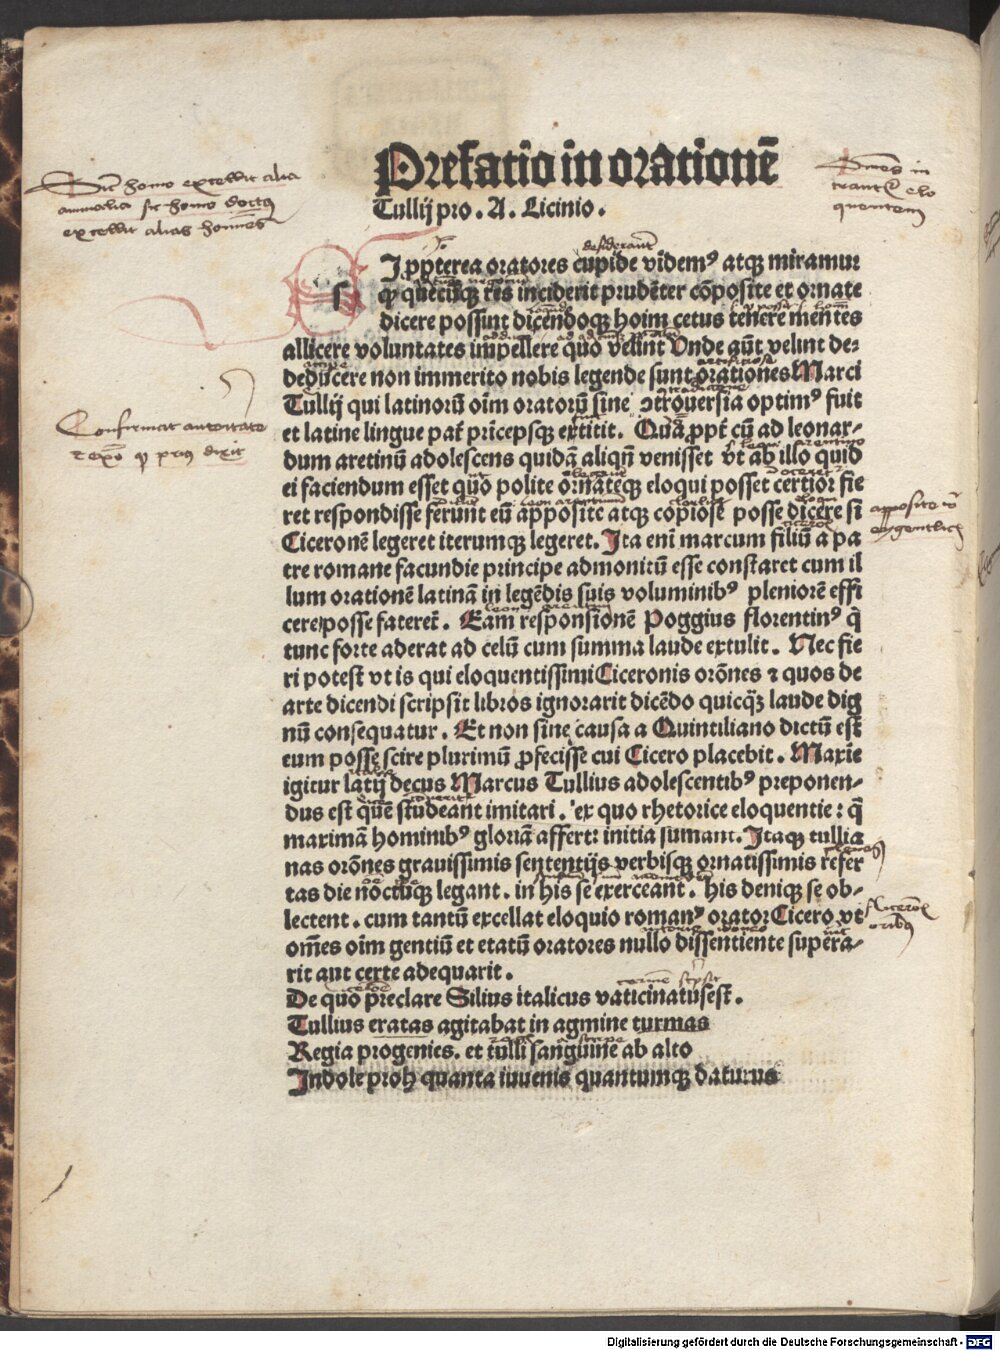 Prefatio in orationē
Tullij pro . A. Licinio .
Sicut homo excellit alia
animalia sic homo doctus
excellit alias homines
eloquentem
desiderant
SI ꝓpterea oratores cupide videmꝰ atqꝫ miramur
ꝙ quecūqꝫ res inciderit prudēter cōposite et ornate
dicere possint dicendoqꝫ hoim cetus tenere mentes
allicere voluntates impellere quo velint Unde aūt velint de-
deducere non immerito nobis legende sunt orationes Marci
Tullij qui latinorū oīm oratorū sine ↄtrouersia optimꝰ fuit
et latine lingue pat̄ prīcepsqꝫ extitit . Quā ꝓpt̄ cū ad leonar-
Confirmat autoritate
dum aretinū adolescens quidā aliqn̄ venisset vt ab illo quid
ei faciendum esset quo polite ornateqꝫ eloqui posset certior fie
ret respondisse ferunt eū apposite atqꝫ copiose posse dicere si
apposite
eygentlich
Ciceronē legeret iterumqꝫ legeret . Ita eni marcum filiū a pa
tre romane facundie principe admonitū esse constaret cum il
lum orationē latinā in legēdis suis voluminibꝰ pleniorē effi
cere posse fateret̄ . Eam responsionē Poggius florentinꝰ q̄
tunc forte aderat ad celū cum summa laude extulit . Nec fie
ri potest vt is qui eloquentissimi Ciceronis orōnes ⁊ quos de
arte dicendi scripsit libros ignorarit dicēdo quicqꝫ laude dig
nū consequatur . Et non sine causa a Quintiliano dictū est
eum posse scire plurimū ꝓfecisse cui Cicero placebit . Maxie
igitur latij decus Marcus Tullius adolescentibꝰ preponen-
dus est quē studeant imitari . ex quo rhetorice eloquentie : q̄
maximā hominibꝰ gloriā affert : initia sumant . Itaqꝫ tullia
nas orōnes grauissimis sententijs verbisqꝫ ornatissimis refer
tas die noctuqꝫ legant . in his se exerceant . his deniqꝫ se ob-
lectent . cum tantū excellat eloquio romanꝰ orator Cicero vt
om̄es oīm gentiū et etatū oratores nullo dissentiente supera-
rit aut certe adequarit .
De quo preclare Silius italicus vaticinatus est .
Tullius eratas agitabat in agmine turmas
Regia progenies . et tulli sanguine ab alto
Indole proh quanta iuuenis quantumqꝫ daturus
Digitalisierung gefördert durch die Deutsche Forschungsgemeinschaft - DFG